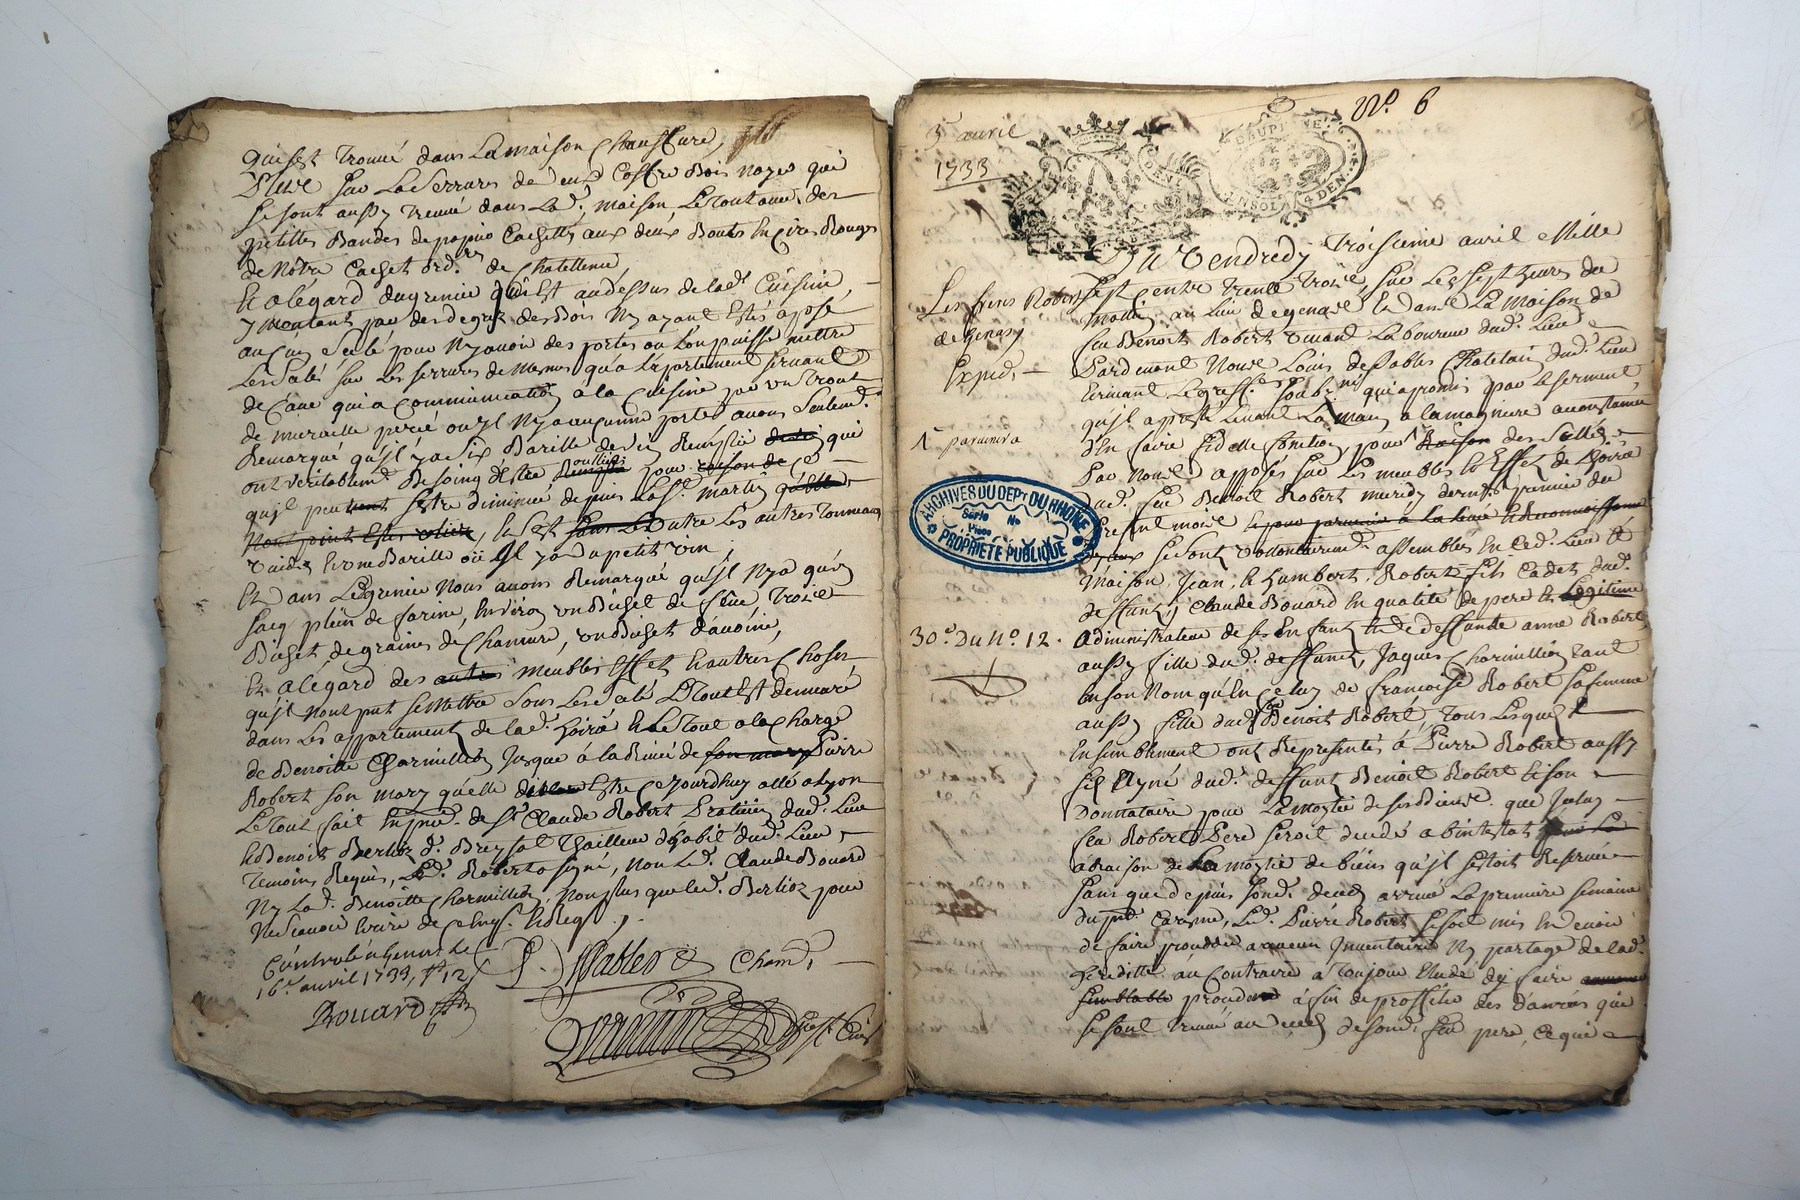 qui s'est trouvé dans la maison
sur les serrures de deux coffre bois noyer qui
se sont aussy trouvé dans lad. maison, le tout avec des
petittes bandes de papier cachetté aux deux bouts en cires rouges
de nôtre cachet ord.re de chatellenie
Et a légard du grenier qui est au dessus de lad. cuisine,
y montant par des degrés de bois n'y ayant estés aposé
aucun scelé pour n'y avoir des portes ou l'on puisse mettre
les scelé sur les serrures de mesmes qu'a l'apartement servant
de cave qui a communication a la cuisine par un trout
de muraille percé ou y'l n'y a aucunne portes avons seulem.t
remarqué qu'jl y a six barille de vin qui
ont veritablem.t besoing d'estre ouilliés pour ce
qu'jl peu s'estre diminué depuis la s.t martin
et c'est outre les autres tonneaux
vuides et une barille où jl y a du petit vin,
Et dans le grenier nous avons remarqué qu'jl n'y a qu'un
sacq plein de farine, environ un bichet de feve, trois
bichet de graines de chanvre, un bichet d'avoine,
Et a légard des meubles effet et autres choses
qu'jl n'ont put se mettre sous le scelé le tout est demuré
dans les appartement de lad. hoirie et le tout a la charge
de Benoitte Charmillion jusque à la venüe de Pierre
Robert son mary qu'elle dit estre ce jourdhuy allé a Lyon
le tout fait en pnce. de s.r Claude Robert praticien dud. lieu
et Benoit Berlioz d. Bressol tailleur d'habit dud. lieu
temoins requis, led. Robert a signé, non led. Claude Bouard
ny lad. Benoitte Charmillion, non plus que led. Berlioz pour
ne scavoir ecrire de ce enquis et requis
Contrôlé à Genas le
16e avril 1733, R. 12 s
Bouard
Chatel.
N.o 6
3e avril
1733
GR
DE LYON
SOL 4 DEN.
Les frères Robert
de Genas
Exped.
1e parmi
ARCHIVES DU DEPT DU RHONE
Série No
Pièce
PROPRIÉTÉ PUBLIQUE
30e Du No. 12.
Du vendredy troisieme avril mille
sept centz trente trois, sur les sept heures du
matin au lieu de genas et dans la maison de
feu Benoit Robert vivant laboureur dud. lieu
pardevant nous Louis de Sables chatelain dud. lieu
ecrivant le greff.er soub.né qui a promis par le serment
qu'jl a presté levant la main a la maniere accoustumée
d'en faire fidelle fonction pour raison des scellés
par nous apposés sur les meubles et effet de l'hoirie
dud. feu Benoit Robert mercredy dernier premier du
present mois
se sont volontairem.t assemblés en ced. lieu et
maison, Jean, et Humbert, Robert fils cadet dud.
deffunt, Claude Bouard en qualité de pere et legitime
administrateur de ses enfant et de deffunte anne Robert
aussy fille dud. deffunt, Jaques Charmillion tant
en son nom qu'en celuy de françoise Robert sa femme
aussy fille dud. feu Benoit Robert, tous lesquels
ensemblement ont representés à Pierre Robert aussy
fils ayné dud. deffunt Benoit Robert et son
donnataire pour la moytié de ses biens que
feu Robert pere seroit decedé ab intestat
à raison de la moytié de biens qu'jl s'estoit reservée
sans que depuis sond. decéd arrivé la premiere semaine
du pnt. careme, led. Pierre Robert se soit mis en devoir
de faire proceder a aucun jnventaire ny partage de lad.
heredité au contraire a toujour éludé d'y faire
semblable proceder à fin de proffiter des danrés que
se sont trouvé au decéd de sond. feu pere, ce qui